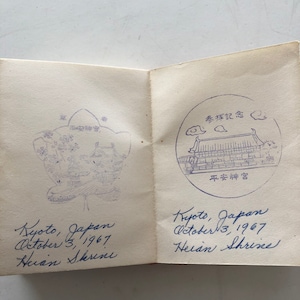 平安神宮
Kyoto, Japan
October 3, 1967
Heian Shrine
参拝記念
平安神宮
Kyoto, Japan
October 3, 1967
Heian Shrine